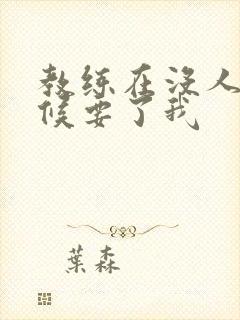 教练在没人
候要了我
葉森